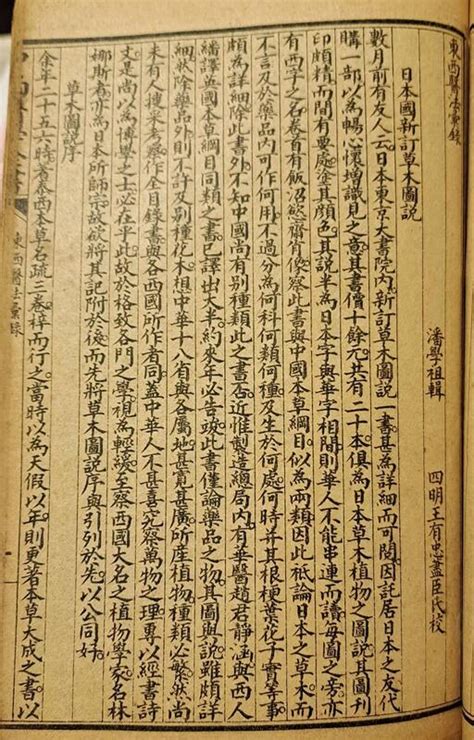 東西醫法彙錄
日本國新訂草木圖説
潘學祖輯 四明王有忠藎臣氏校
數月前有友人云日本東京大書院內新訂草木圖説一書甚為詳細而可閱因託居日本之友代
購一部以為暢心懷增識見之意其書價十餘元共有二十本俱為日本草木植物之圖説其圖刊
印頗精而間有要處塗其顔色其説半為日本字與華字相間則華人不能串連而讀每圖之旁亦
有西字之名卷首有飯沼慾齋肖像察此書與中國本草綱目似為兩類因此祗論日本之草木而
不言及於藥品内可作何用不過分為何科何類何種及生於何處何時并其根梗葉花子實等事
頗為詳細除此書外不知中國尚有別種類此之書否近惟製造總局内有華醫趙君靜涵與西人
繙譯英國本草綱目同類之書已譯出大半約來年必告竣此書僅論藥品之物其圖與説雖頗詳
細然除藥品外則不許及別種花木想中華十八省與各屬地甚寬甚廣所產植物種類必繁然尚
未有人搜采考察作全目錄書與各西國所作者同蓋中華人不甚喜究察萬物之理專以經書詩
文是尚以為博學之士必在乎此故於格致各門之學視為輕藐至察西國大名之植物學家名林
娜斯者亦為日本所師宗故欲將其記附於後而先將草木圖説序與引列於先以公同好
草木圖説序
余年二十五六時著泰西本草名疏三卷梓而行之當時以為天假以年則更著本草大成之書以
東西醫法彙錄